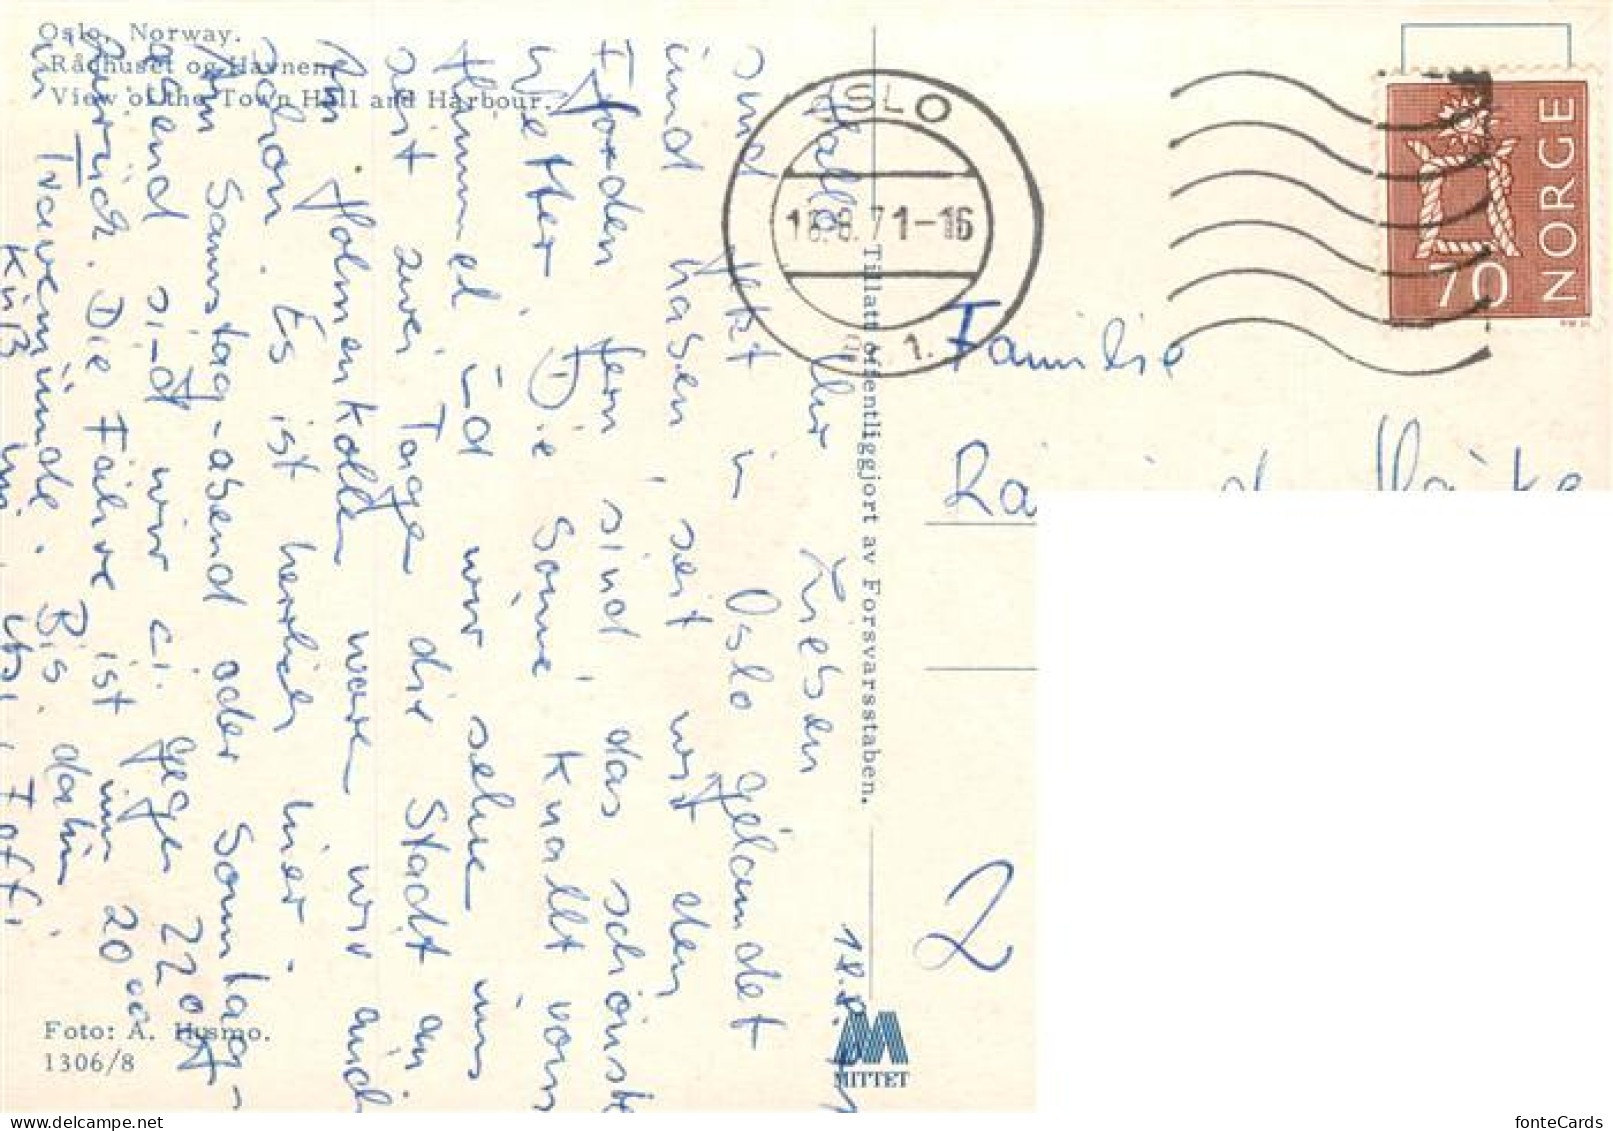 Oslo, Norway.
Rådhuset og Havnen.
View of the Town Hall and Harbour.
OSLO
18.8.71-16
1.
NORGE
70
Tillatt offentliggjort av Forsvarsstaben.
18.8.
Hallo Ihr Lieben
sind jetzt in Oslo gelandet
und haben, seit wir den
Fjorden fern sind, das schönste
Wetter. Die Sonne knallt vom
Himmel und wir sehen uns
seit zwei Tagen die Stadt an.
Am Holmenkollen waren wir auch
schon. Es ist herrlich hier.
Am Samstag-abend oder Sonntag-
abend sind wir gegen 22 00
zurück. Die Fähre ist um 20 00
in Travemünde. Bis dahin
Kuß
Familie
2
Foto: A. Husmo.
1306/8
MITTET
fonteCards